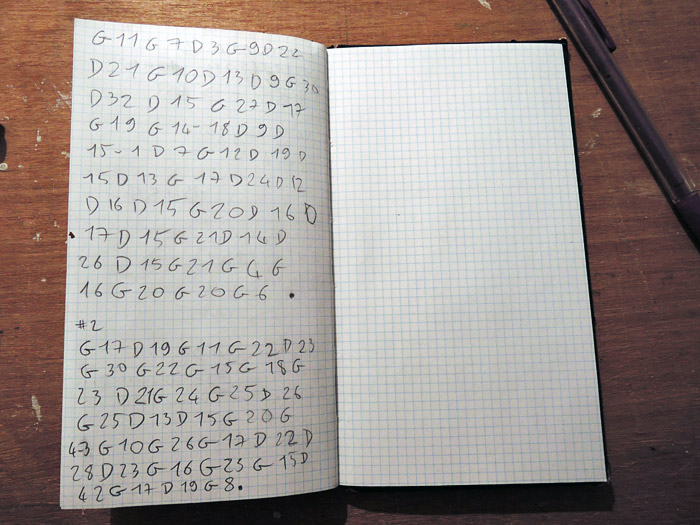 G 11 G 7 D 3 G 9 D 22
D 21 G 10 D 13 D 9 G 30
D 32 D 15 G 27 D 17
G 19 G 14 - 18 D 9 D
15 - 1 D 7 G 12 D 19 D
15 D 13 G 17 D 24 D 12
D 16 D 15 G 20 D 16 D
17 D 15 G 21 D 14 D
26 D 15 G 21 G 4 G
16 G 20 G 20 G 6 .
#2
G 17 D 19 G 11 G 22 D 23
G 30 G 22 G 15 G 18 G
23 D 21 G 24 G 25 D 26
G 25 D 13 D 15 G 20 G
43 G 10 G 26 G 17 D 22 D
28 D 23 G 16 G 23 G 15 D
42 G 17 D 19 G 8.